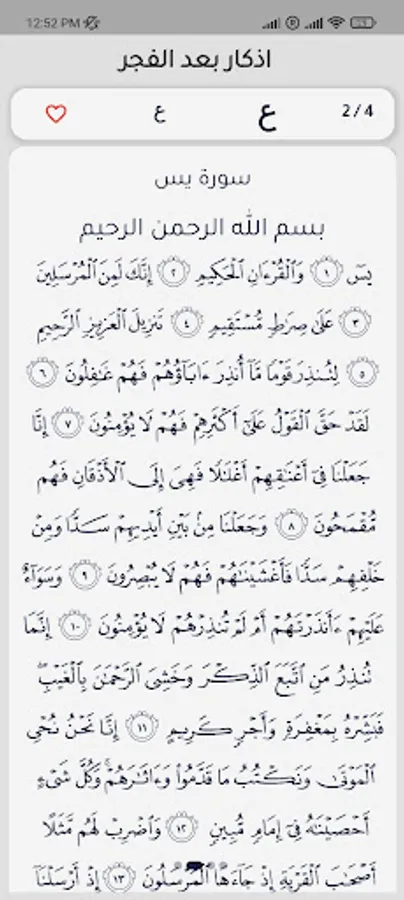 12:52 PM
اذكار بعد الفجر
ع ع 2/4
سورة يس
بسم الله الرحمن الرحيم
يسٓ ١ وَالْقُرْءَانِ الْحَكِيمِ ٢ إِنَّكَ لَمِنَ الْمُرْسَلِينَ
٣ عَلَىٰ صِرَٰطٍ مُّسْتَقِيمٍ ٤ تَنزِيلَ الْعَزِيزِ الرَّحِيمِ
٥ لِتُنذِرَ قَوْمًا مَّآ أُنذِرَ ءَابَآؤُهُمْ فَهُمْ غَٰفِلُونَ ٦
لَقَدْ حَقَّ الْقَوْلُ عَلَىٰٓ أَكْثَرِهِمْ فَهُمْ لَا يُؤْمِنُونَ ٧ إِنَّا
جَعَلْنَا فِىٓ أَعْنَٰقِهِمْ أَغْلَٰلًا فَهِىَ إِلَى الْأَذْقَانِ فَهُم
مُّقْمَحُونَ ٨ وَجَعَلْنَا مِنۢ بَيْنِ أَيْدِيهِمْ سَدًّا وَمِنْ
خَلْفِهِمْ سَدًّا فَأَغْشَيْنَٰهُمْ فَهُمْ لَا يُبْصِرُونَ ٩ وَسَوَآءٌ
عَلَيْهِمْ ءَأَنذَرْتَهُمْ أَمْ لَمْ تُنذِرْهُمْ لَا يُؤْمِنُونَ ١٠ إِنَّمَا
تُنذِرُ مَنِ اتَّبَعَ الذِّكْرَ وَخَشِىَ الرَّحْمَٰنَ بِالْغَيْبِ ۖ
فَبَشِّرْهُ بِمَغْفِرَةٍ وَأَجْرٍ كَرِيمٍ ١١ إِنَّا نَحْنُ نُحْىِ
الْمَوْتَىٰ وَنَكْتُبُ مَا قَدَّمُوا۟ وَءَاثَٰرَهُمْ ۚ وَكُلَّ شَىْءٍ
أَحْصَيْنَٰهُ فِىٓ إِمَامٍ مُّبِينٍ ١٢ وَاضْرِبْ لَهُم مَّثَلًا
أَصْحَٰبَ الْقَرْيَةِ إِذْ جَآءَهَا الْمُرْسَلُونَ ١٣ إِذْ أَرْسَلْنَآ